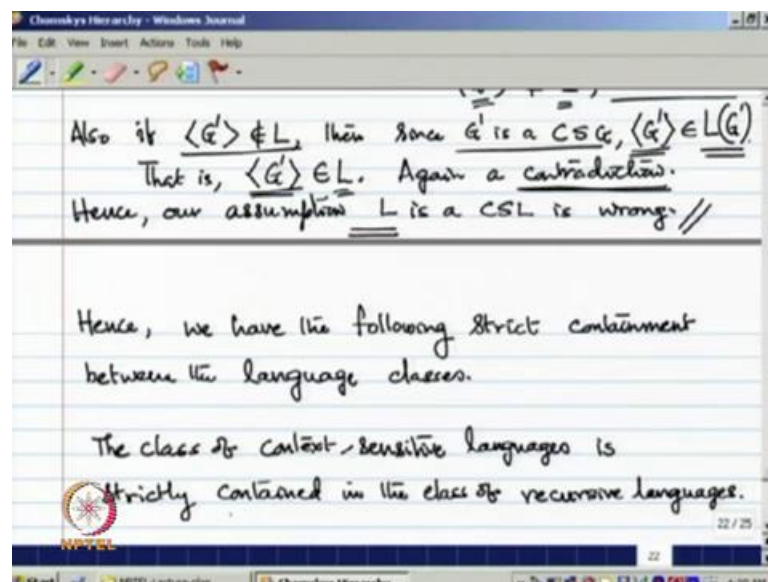 Chomskys Hierarchy - Windows Journal
File Edit View Insert Actions Tools Help
Also if ⟨G'⟩ ∉ L, then since G' is a CSG, ⟨G'⟩ ∈ L(G').
That is, ⟨G'⟩ ∈ L. Again a contradiction.
Hence, our assumption L is a CSL is wrong. //
Hence, we have the following strict containment
between the language classes.
The class of context-sensitive languages is
strictly contained in the class of recursive languages.
22 / 25
NPTEL
22